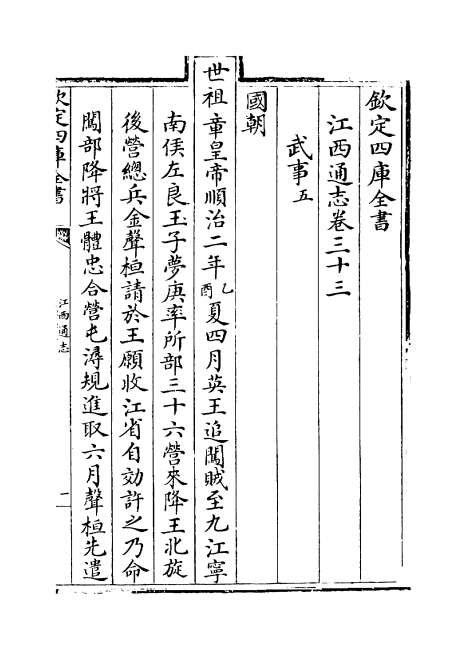 欽定四庫全書
江西通志卷三十三
武事五
國朝
世祖章皇帝順治二年乙酉夏四月英王追闖賊至九江寧
南侯左良玉子夢庚率所部三十六營來降王北旋
後營總兵金聲桓請於王願收江省自効許之乃命
闖部降將王體忠合營屯潯規進取六月聲桓先遣
欽定四庫全書
江西通志